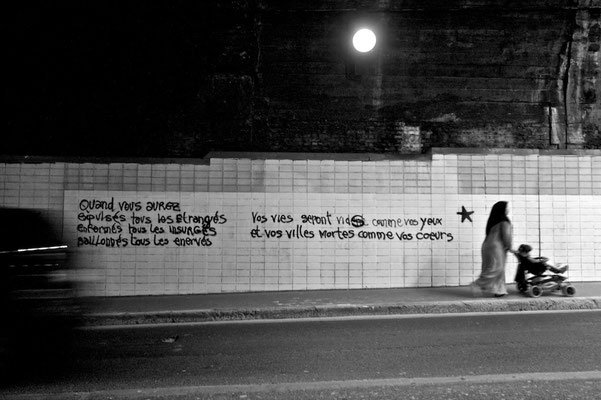 Quand vous aurez
expulsés tous les Etrangés
enfermés tous les insurgés
baillonnés tous les enervés
Vos vies seront vides comme vos yeux
et vos villes mortes comme vos coeurs